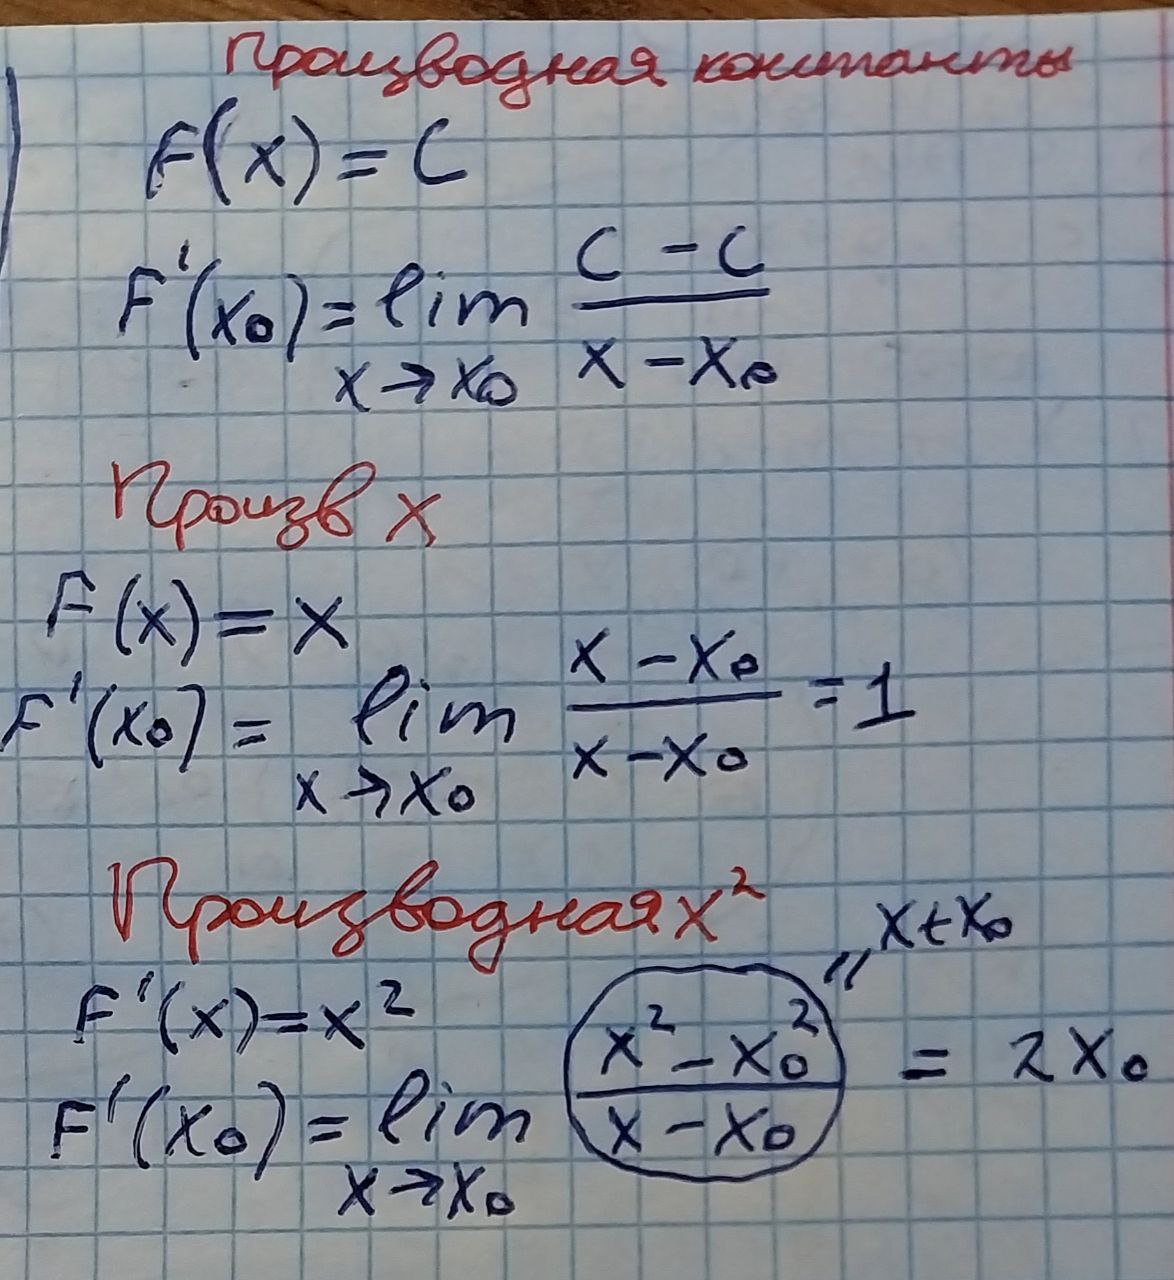 Производная константы
F(x) = C
F'(x₀) = lim x→x₀ (C - C)/(x - x₀)
Произв x
F(x) = x
F'(x₀) = lim x→x₀ (x - x₀)/(x - x₀) = 1
Производная x²
x + x₀
F'(x) = x²
F'(x₀) = lim x→x₀ (x² - x₀²)/(x - x₀) = 2x₀